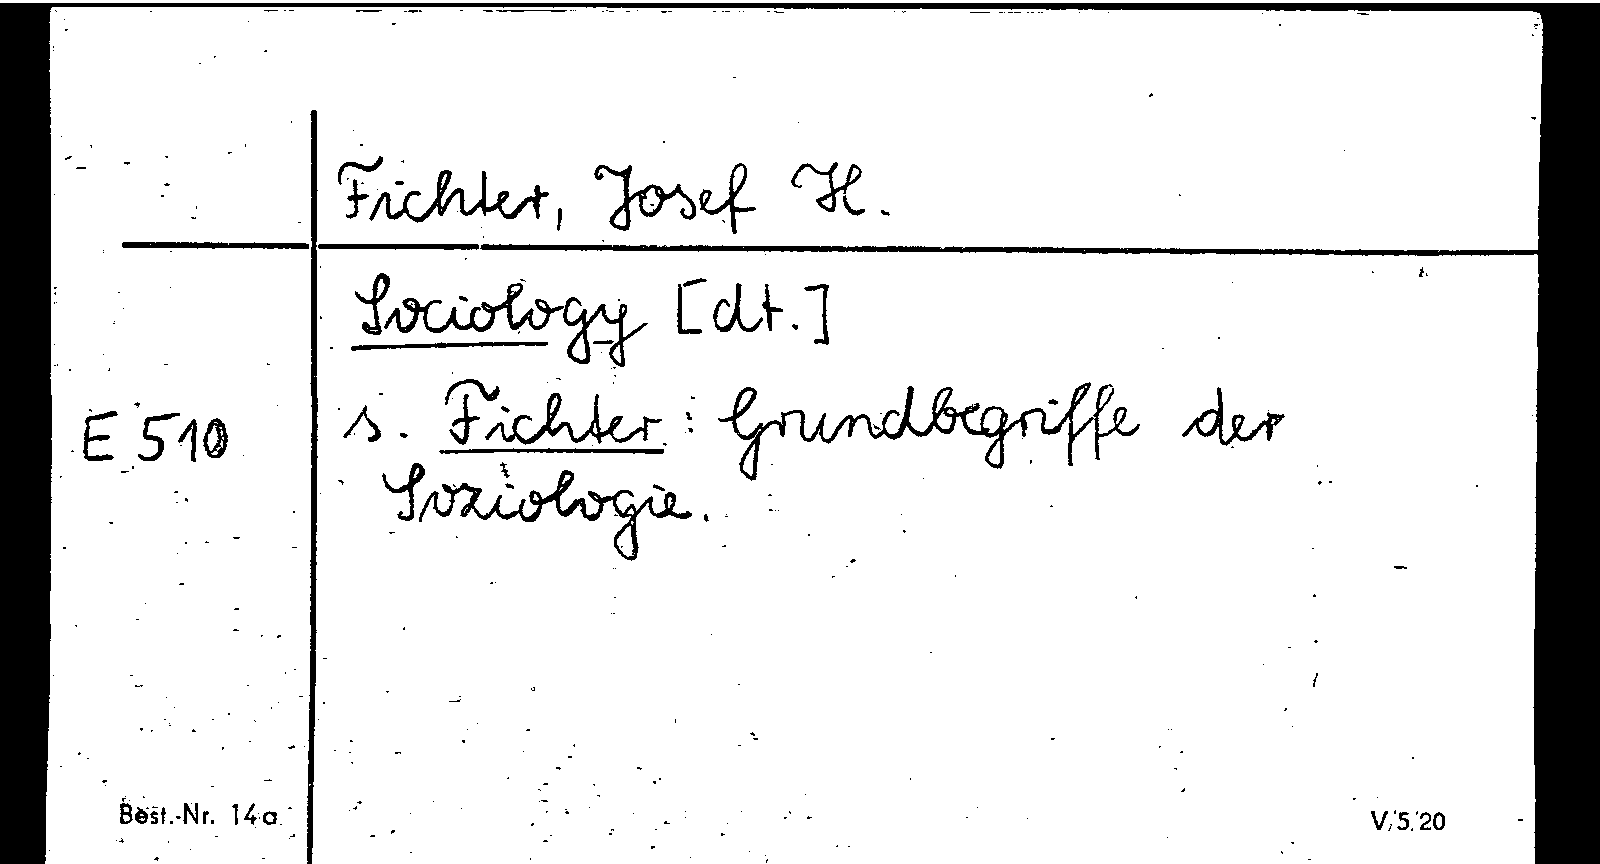 Fichter, Josef H.
Sociology [dt.]
E 510 s. Fichter: Grundbegriffe der
Soziologie.
Best.-Nr. 14a V/5/20